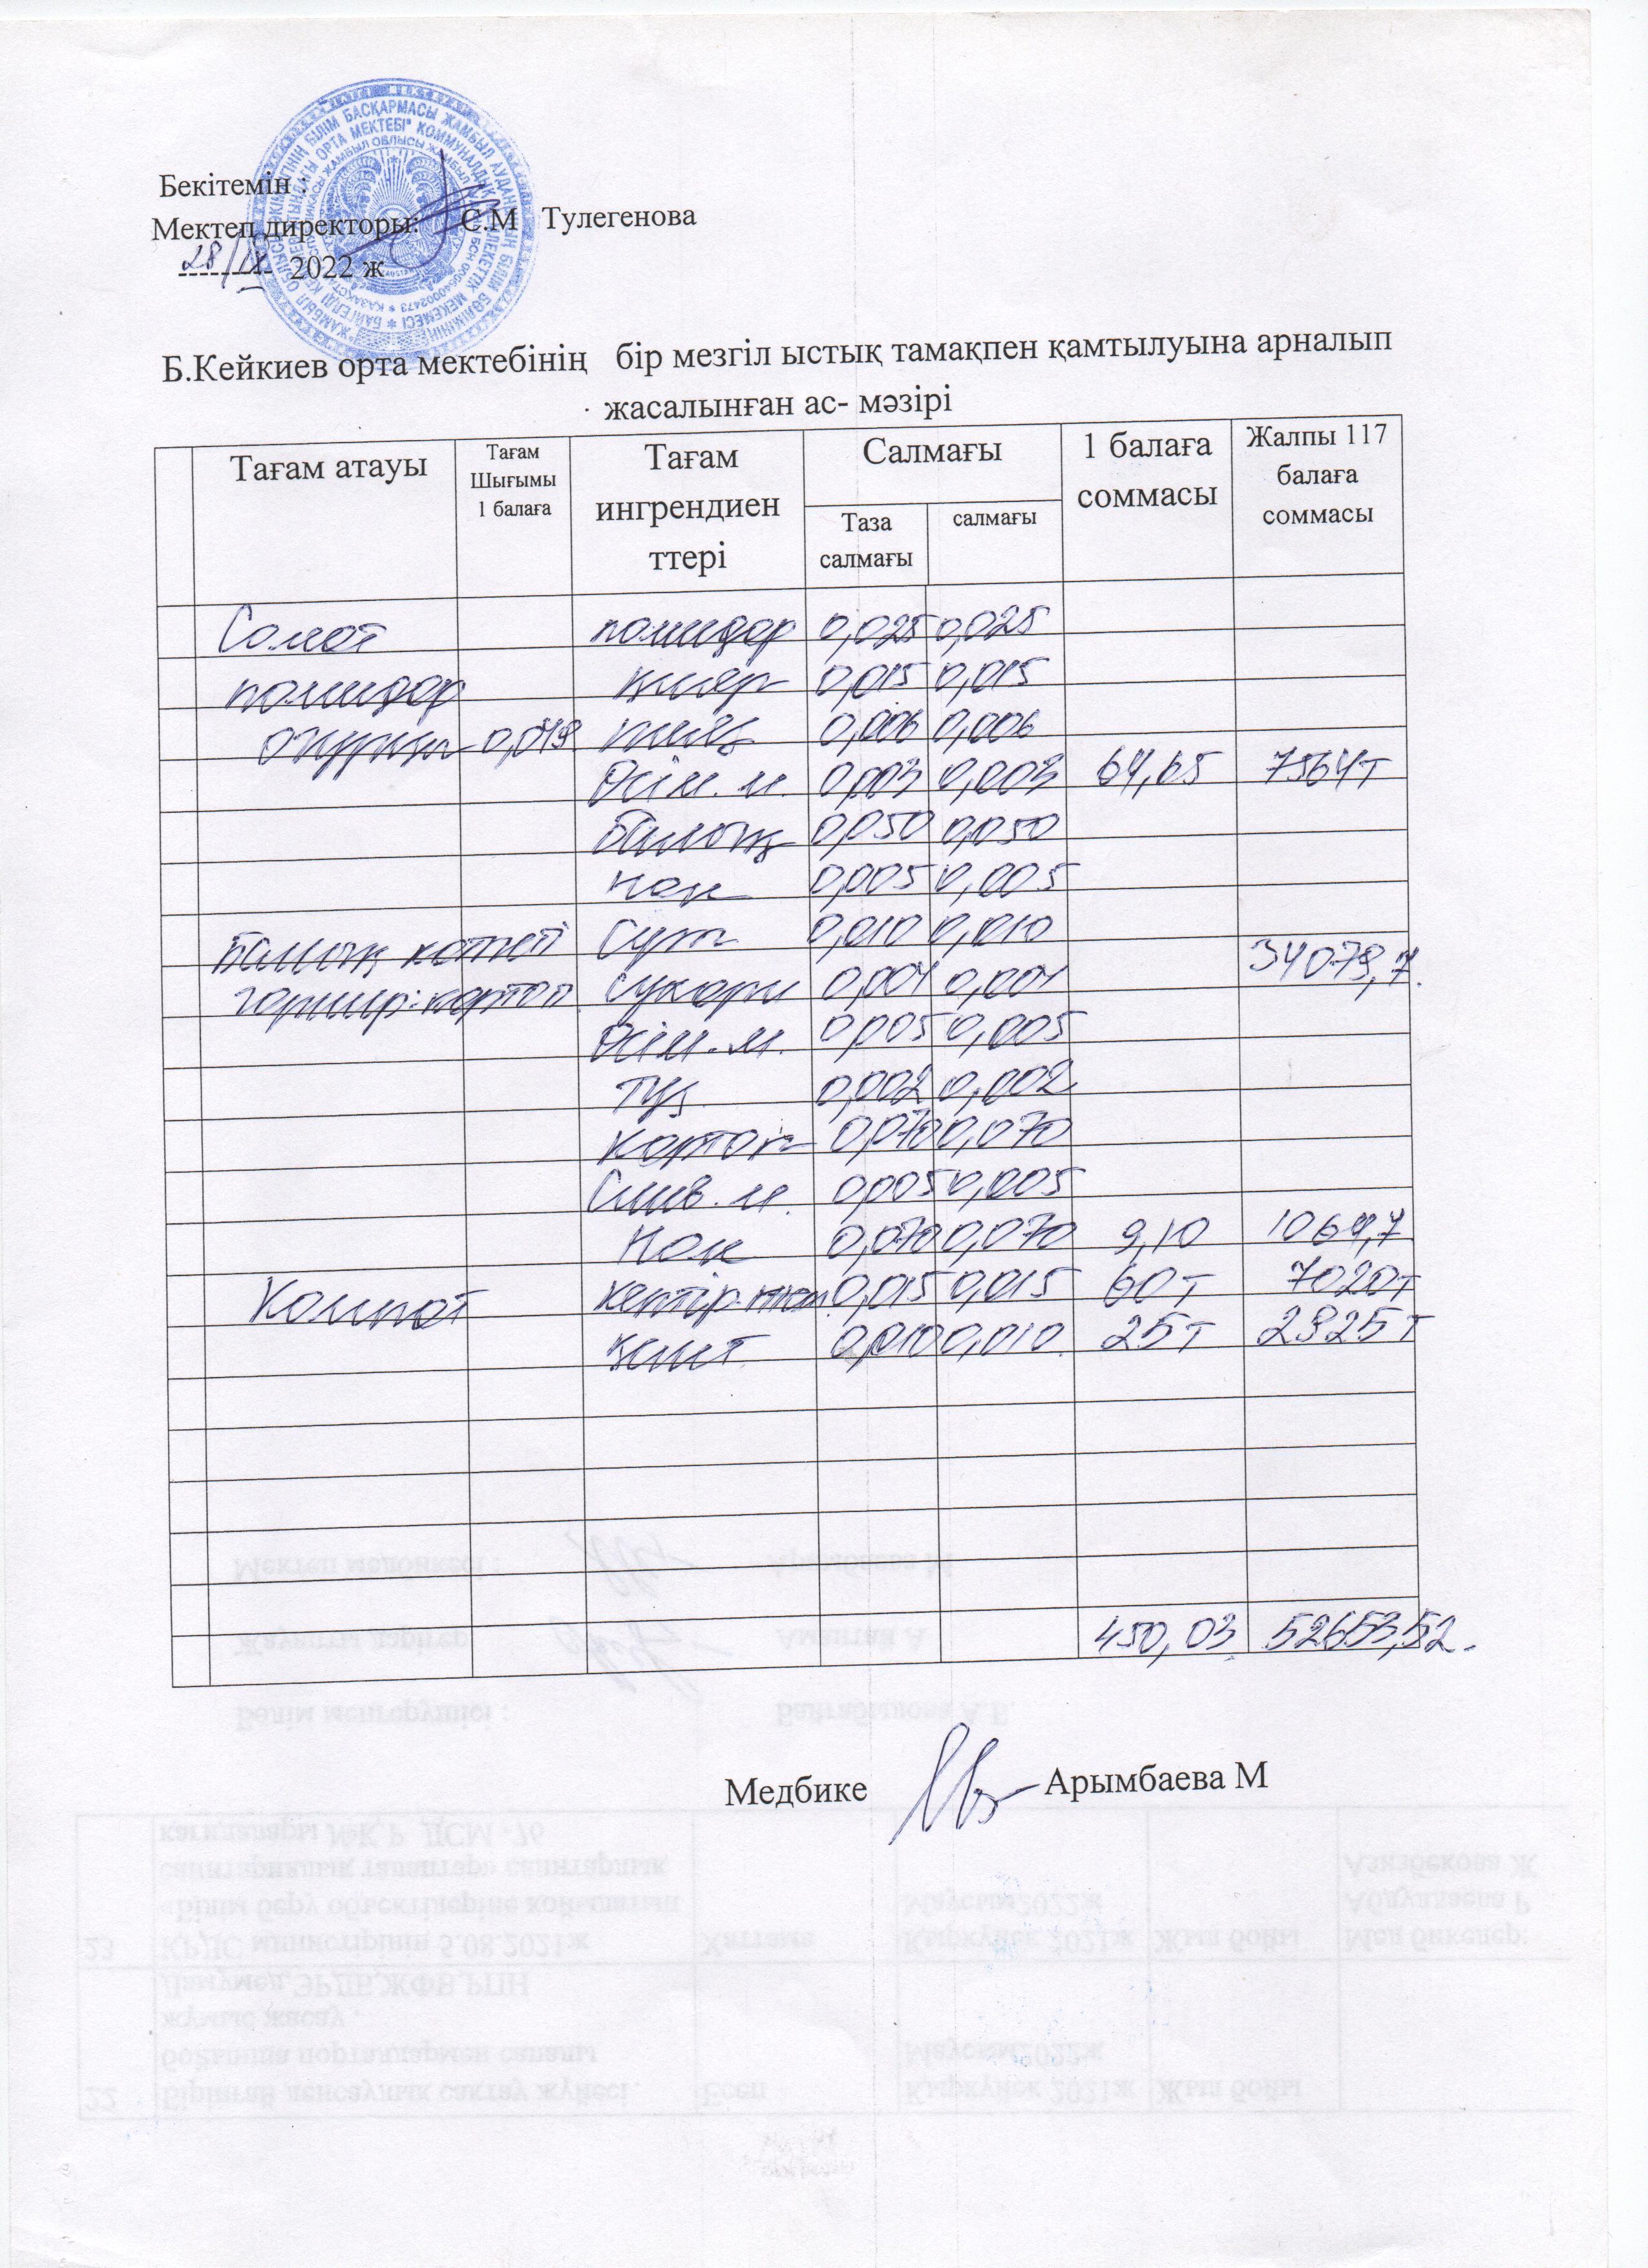 Бекітемін :
Мектеп директоры: С.М Тулегенова
28/IX 2022 ж
Б.Кейкиев орта мектебінің бір мезгіл ыстық тамақпен қамтылуына арналып
жасалынған ас- мәзірі
Тағам атауы
Тағам
Шығымы
1 балаға
Тағам
ингрендиен
ттері
Салмағы
Таза
салмағы
салмағы
1 балаға
соммасы
Жалпы 117
балаға
соммасы
Салат помидор 0,025 0,025
помидор қияр 0,015 0,015
огурцы 0,049 пияз 0,006 0,006
Өсім. м. 0,003 0,003 64,65 7564т
балық 0,050 0,050
нан 0,005 0,005
Балық котлеті Сүт 0,010 0,010
34079,7
гарнир:картоп сухари 0,004 0,004
Өсім. м. 0,005 0,005
тұз 0,002 0,002
Картоп 0,070 0,070
Слив. м. 0,005 0,005
Нан 0,070 0,070 9,10 1064,7
Компот кептір. 0,015 0,015 60т 7020т
қант 0,010 0,010 25т 2925т
450,03 52653,52
Медбике Арымбаева М